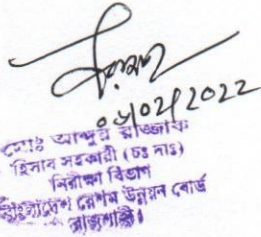 ০৮/০২/2022
মোঃ আব্দুর রাজ্জাক
হিসাব সহকারী (চঃ দাঃ)
নিরীক্ষা বিভাগ
বাংলাদেশ রেশম উন্নয়ন বোর্ড
রাজশাহী।